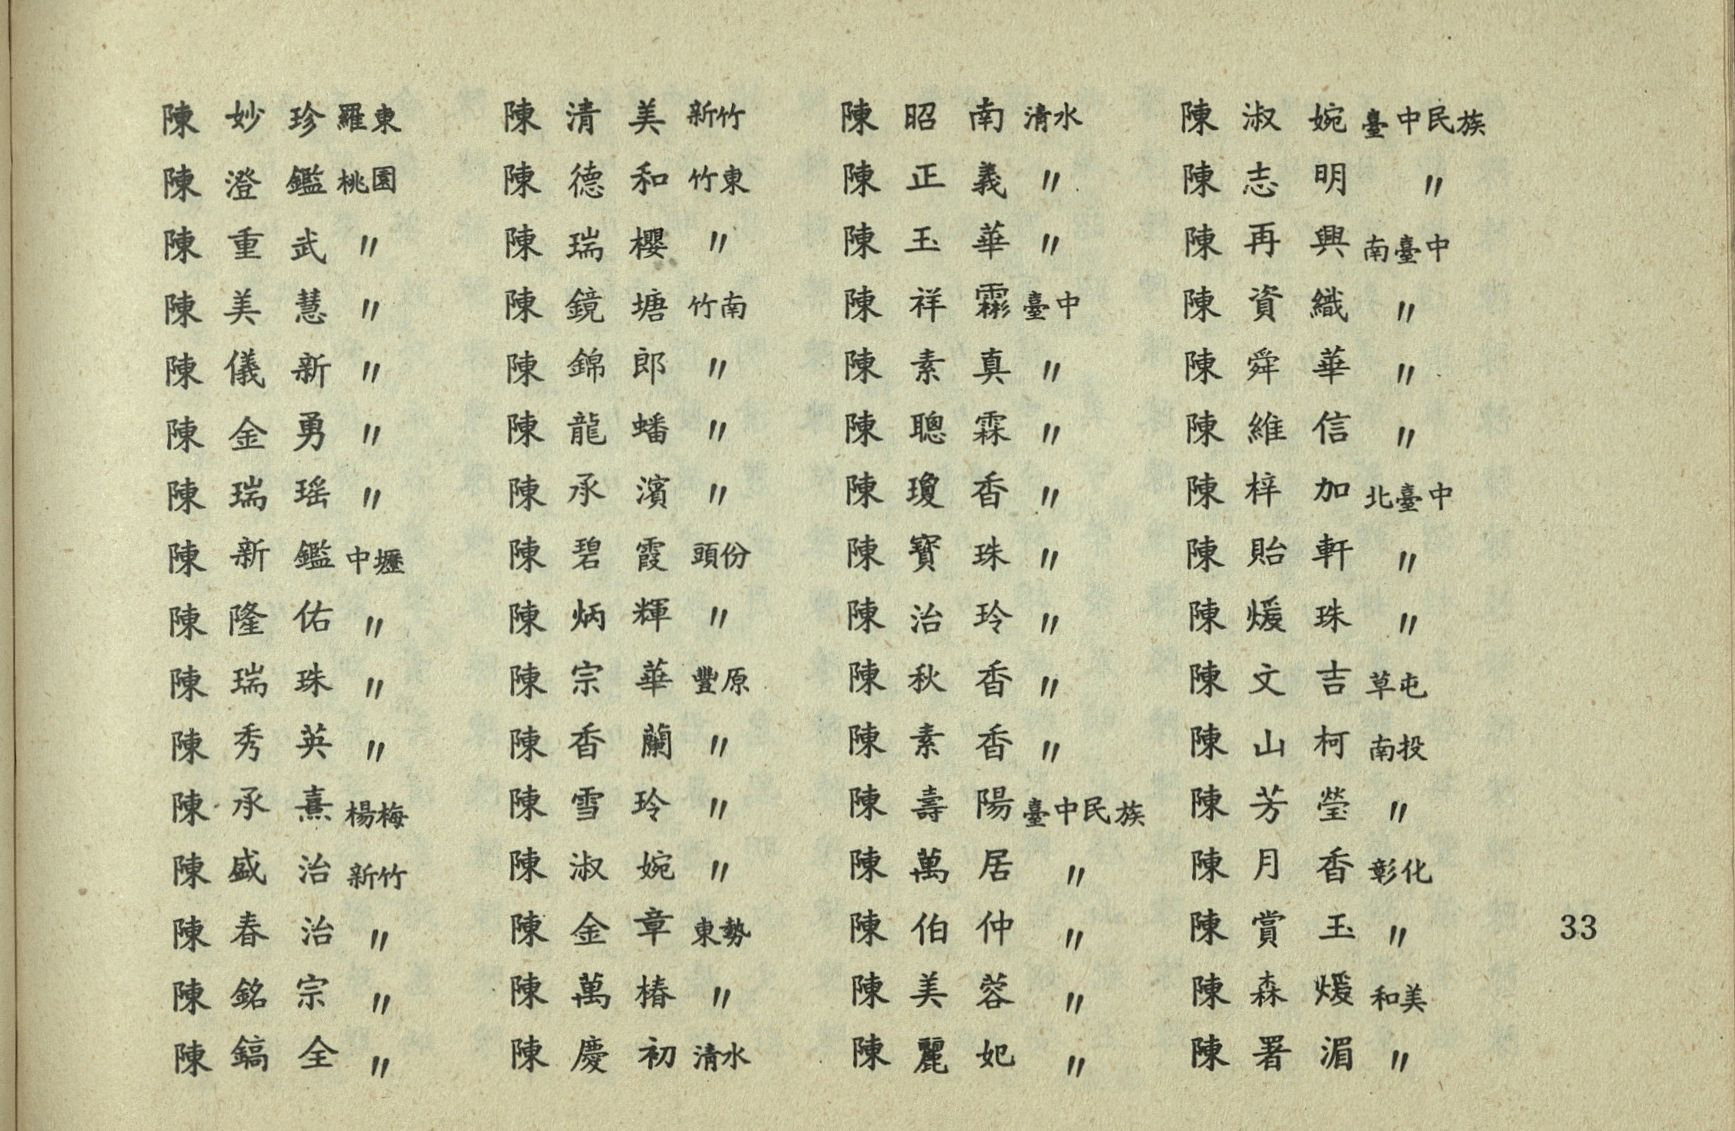 陳妙珍 羅東
陳澄鑑 桃園
陳重武 〃
陳美慧 〃
陳儀新 〃
陳金勇 〃
陳瑞瑶 〃
陳新鑑 中壢
陳隆佑 〃
陳瑞珠 〃
陳秀英 〃
陳承熹 楊梅
陳盛治 新竹
陳春治 〃
陳銘宗 〃
陳鎬全 〃
陳清美 新竹
陳德和 竹東
陳瑞櫻 〃
陳鏡塘 竹南
陳錦郎 〃
陳龍蟠 〃
陳承濱 〃
陳碧霞 頭份
陳炳輝 〃
陳宗華 豐原
陳香蘭 〃
陳雪玲 〃
陳淑婉 〃
陳金章 東勢
陳萬椿 〃
陳慶初 清水
陳昭南 清水
陳正義 〃
陳玉華 〃
陳祥霦 臺中
陳素真 〃
陳聰霖 〃
陳瓊香 〃
陳寳珠 〃
陳治玲 〃
陳秋香 〃
陳素香 〃
陳壽陽 臺中民族
陳萬居 〃
陳伯仲 〃
陳美蓉 〃
陳麗妃 〃
陳淑婉 臺中民族
陳志明 〃
陳再興 南臺中
陳資織 〃
陳舜華 〃
陳維信 〃
陳梓加 北臺中
陳貽軒 〃
陳煖珠 〃
陳文吉 草屯
陳山柯 南投
陳芳瑩 〃
陳月香 彰化
陳賞玉 〃
陳森煖 和美
陳署湄 〃
33